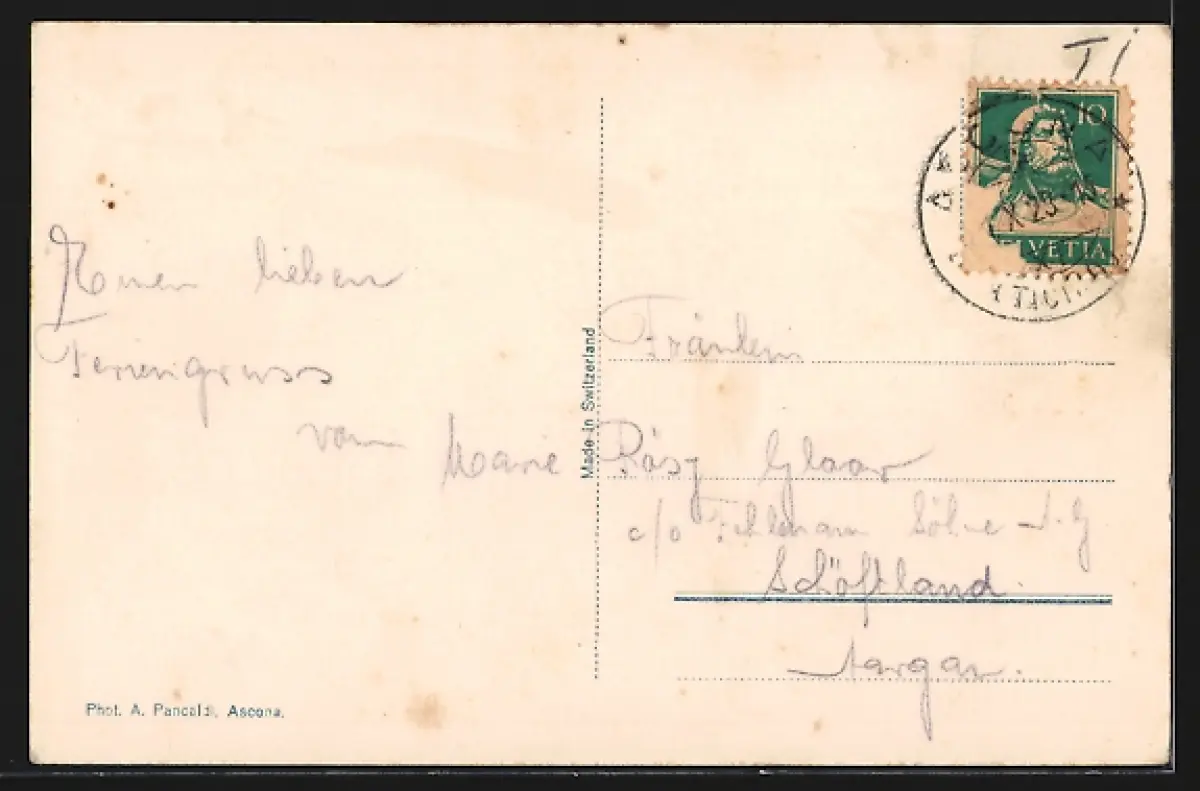 Ti
10
X 23
HELVETIA
(TICINO)
Einen lieben
Feriengruss
von Marie
Made in Switzerland
Fräulein
Rösy Glaar
c/o Fehlmann Söhne A.G
Schöftland.
Aargau.
Phot. A. Pancaldi, Ascona.